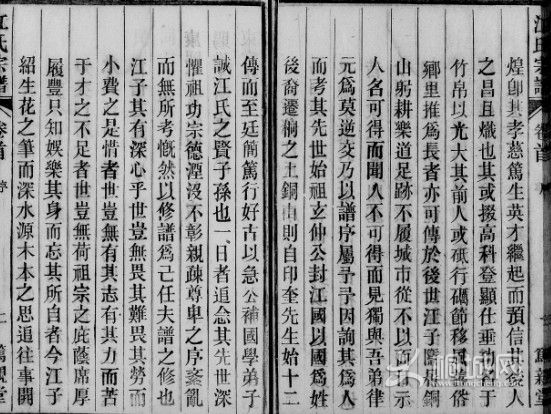 江氏宗譜 卷首 序 篤親堂
煌卽其孝慈篤生英才繼起而預信其後人
之昌且熾也其或掇高科登顯仕垂功名于
竹帛以光大其前人或砥行礪節移風易俗
鄉里推爲長者亦可傳於後世江子隱居銅
山躬耕樂道足跡不履城市從不以面目示
人人名可得而聞人不可得而見獨與吾弟律
元爲莫逆交乃以譜序屬予予因詢其爲人
而考其先世始祖玄仲公封江國以國爲姓
後裔遷桐之土銅山則自印奎先生始十二
傳而至廷簡篤行好古以急公補國學弟子
誠江氏之賢子孫也一日者追念其先世深
懼祖功宗德湮沒不彰親疎尊卑之序紊亂
而無所考慨然以修譜爲己任夫譜之修也
江子其有深心乎世豈無畏其難畏其勞而
小費之是惜者世豈無有其志有其力而苦
于才之不足者世豈無荷祖宗之庇蔭席厚
履豐只知娛樂其身而忘其所自者今江子
紹生花之筆而深水源木本之思追往事闢
江氏宗譜 卷首 序 二 篤親堂
桐城网